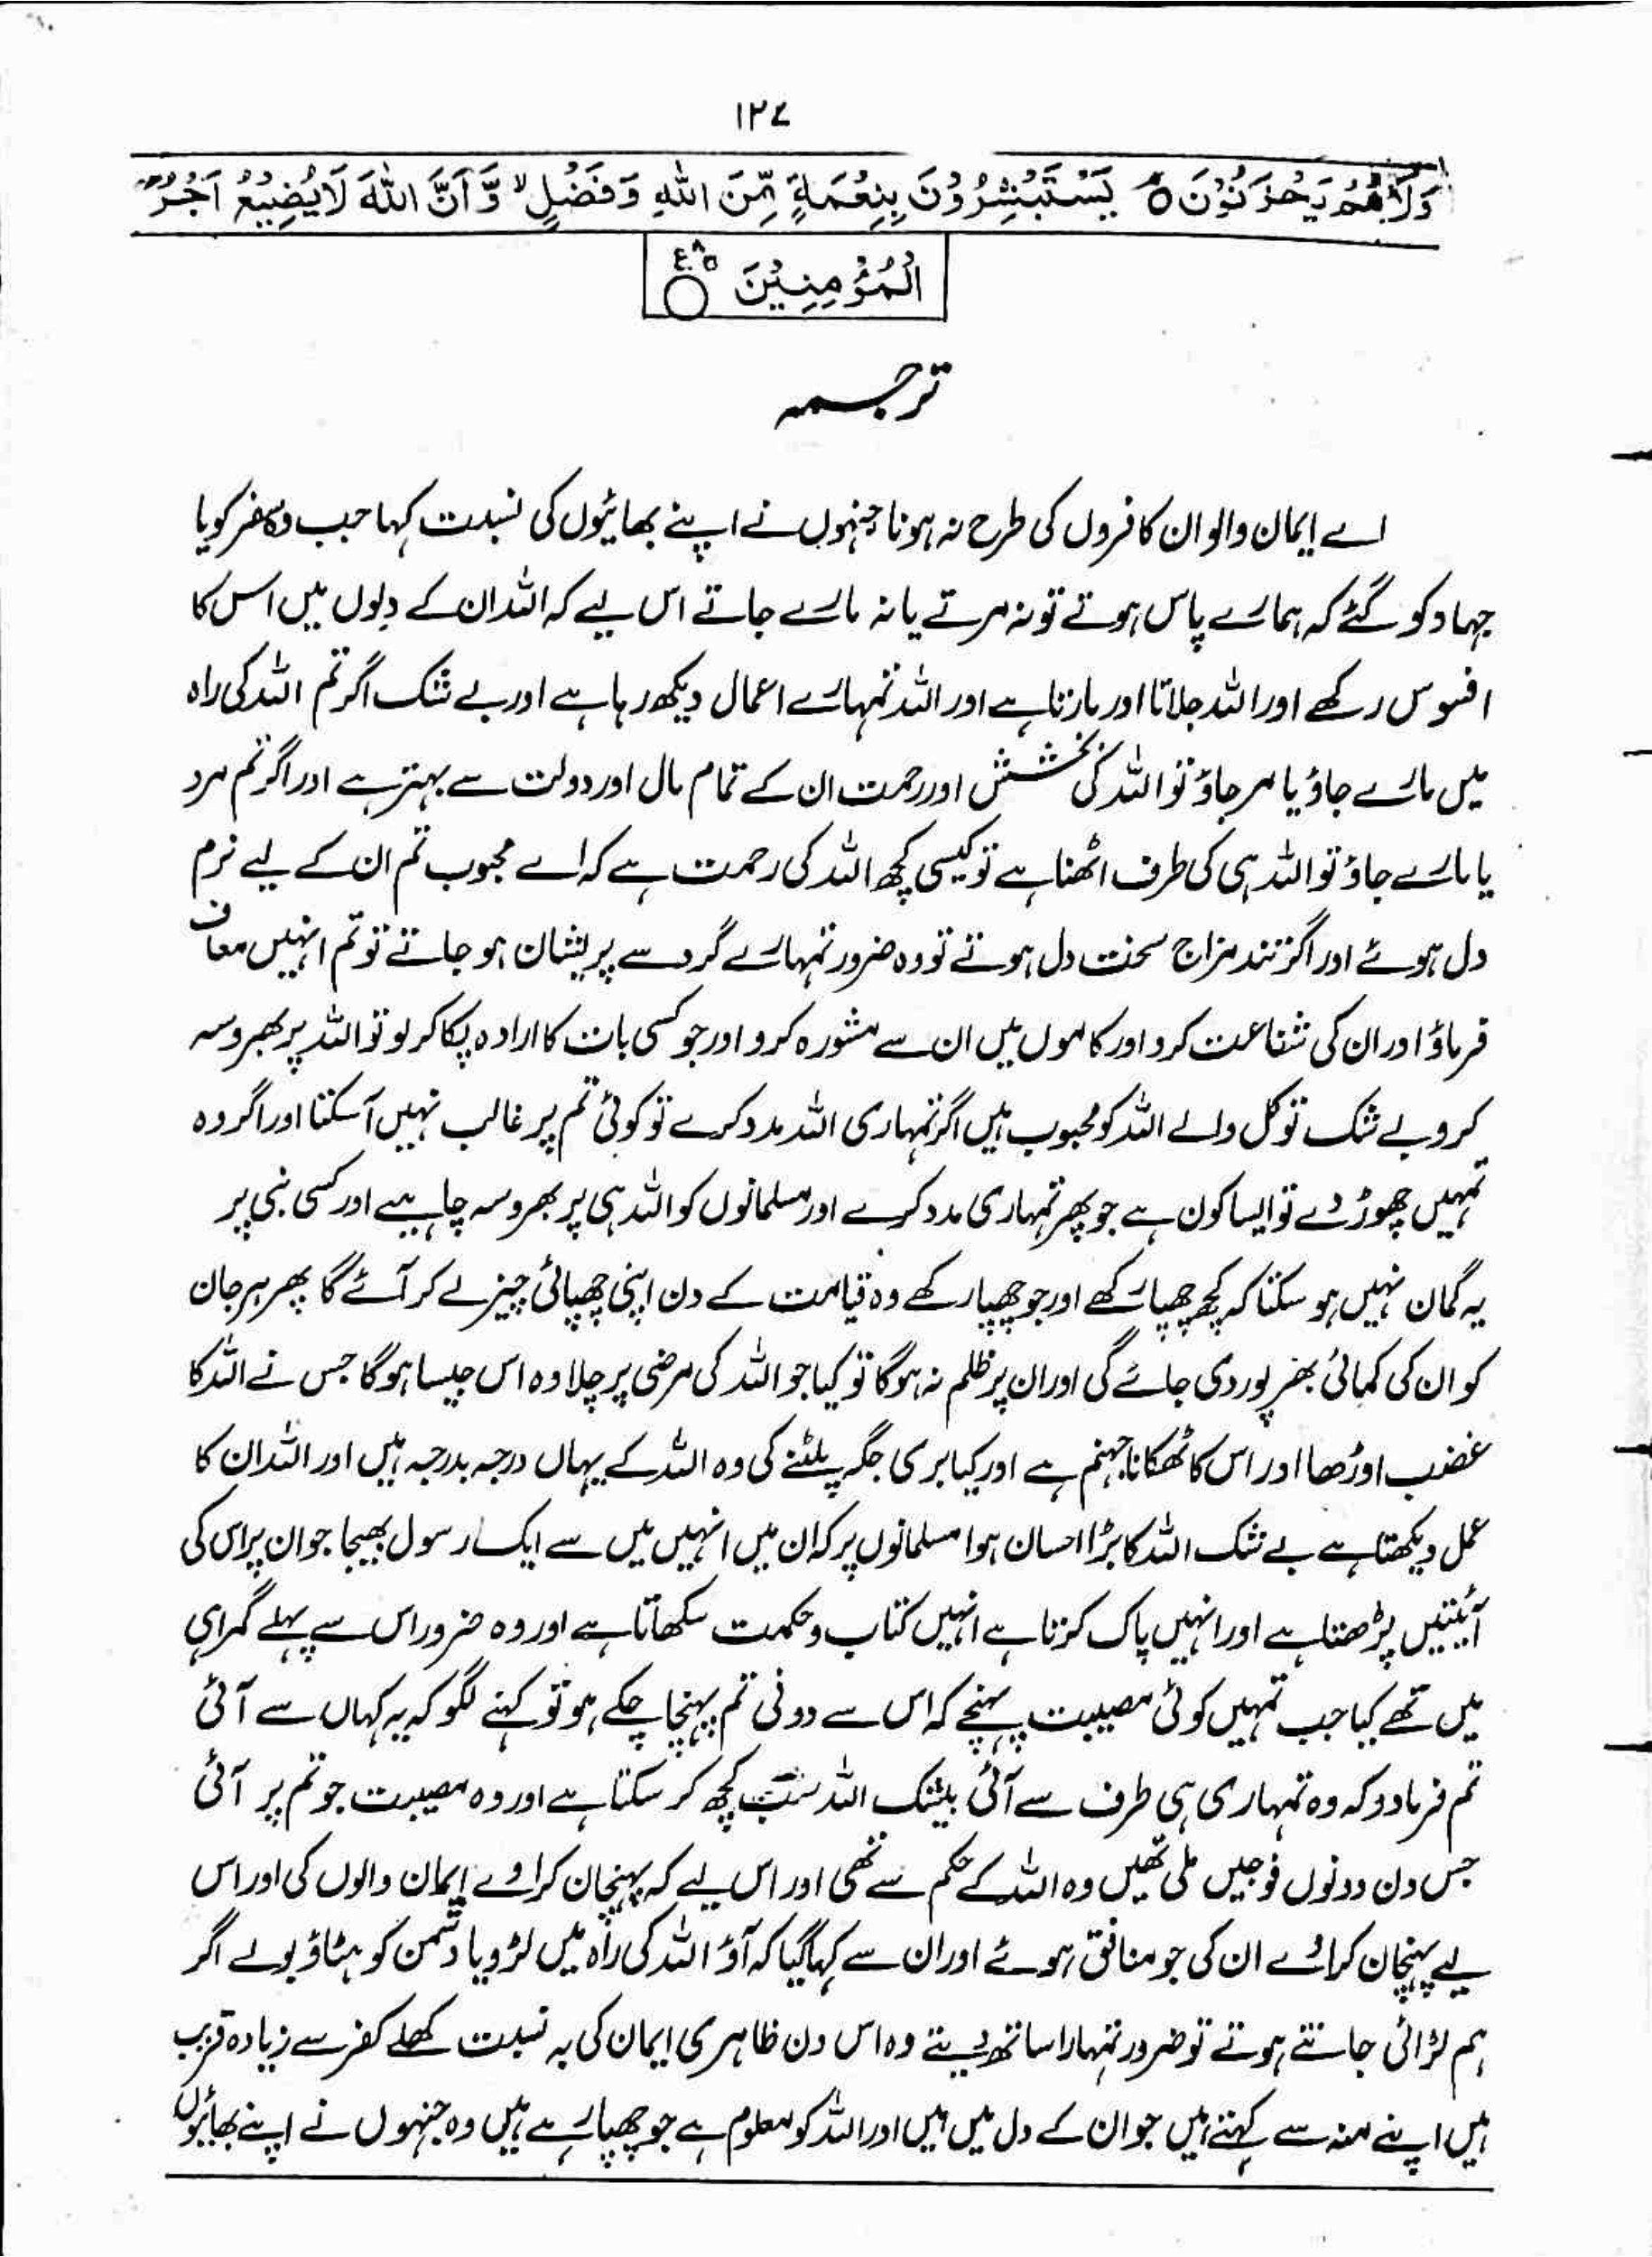 ۱۲۷
وَلَا هُمْ يَحْزَنُوْنَ ۝ يَسْتَبْشِرُوْنَ بِنِعْمَةٍ مِّنَ اللّٰهِ وَفَضْلٍ ۙ وَّ اَنَّ اللّٰهَ لَا يُضِيْعُ اَجْرَ
الْمُؤْمِنِيْنَ ۝
ترجمہ
اے ایمان والو ان کافروں کی طرح نہ ہونا جنہوں نے اپنے بھائیوں کی نسبت کہا جب وہ سفر کو یا
جہاد کو گئے کہ ہمارے پاس ہوتے تو نہ مرتے یا نہ مارے جاتے اس لیے کہ اللہ ان کے دلوں میں اس کا
افسوس رکھے اور اللہ جلاتا اور مارتا ہے اور اللہ تمہارے اعمال دیکھ رہا ہے اور بے شک اگر تم اللہ کی راہ
میں مارے جاؤ یا مر جاؤ تو اللہ کی بخشش اور رحمت ان کے تمام مال اور دولت سے بہتر ہے اور اگر تم مرد
یا مارے جاؤ تو اللہ ہی کی طرف اٹھنا ہے تو کیسی کچھ اللہ کی رحمت ہے کہ اے محبوب تم ان کے لیے نرم
دل ہوئے اور اگر تند مزاج سخت دل ہوتے تو وہ ضرور تمہارے گرد سے پریشان ہو جاتے تو تم انہیں معاف
فرماؤ اور ان کی شفاعت کرو اور کاموں میں ان سے مشورہ کرو اور جو کسی بات کا ارادہ پکا کر لو تو اللہ پر بھروسہ
کرو بے شک توکل والے اللہ کو محبوب ہیں اگر تمہاری اللہ مدد کرے تو کوئی تم پر غالب نہیں آسکتا اور اگر وہ
تمہیں چھوڑ دے تو ایسا کون ہے جو پھر تمہاری مدد کرے اور مسلمانوں کو اللہ ہی پر بھروسہ چاہیے اور کسی نبی پر
یہ گمان نہیں ہو سکتا کہ کچھ چھپا رکھے اور جو چھپا رکھے وہ قیامت کے دن اپنی چھپائی چیز لے کر آئے گا پھر ہر جان
کو ان کی کمائی بھرپور دی جائے گی اور ان پر ظلم نہ ہوگا تو کیا جو اللہ کی مرضی پر چلا وہ اس جیسا ہوگا جس نے اللہ کا
غضب اوڑھا اور اس کا ٹھکانا جہنم ہے اور کیا بری جگہ پلٹنے کی وہ اللہ کے یہاں درجہ بدرجہ ہیں اور اللہ ان کا
عمل دیکھتا ہے بے شک اللہ کا بڑا احسان ہوا مسلمانوں پر کہ ان میں انہیں میں سے ایک رسول بھیجا جو ان پر اس کی
آئیتیں پڑھتا ہے اور انہیں پاک کرتا ہے انہیں کتاب و حکمت سکھاتا ہے اور وہ ضرور اس سے پہلے گمراہی
میں تھے کیا جب تمہیں کوئی مصیبت پہنچے کہ اس سے دونی تم پہنچا چکے ہو تو کہنے لگو کہ یہ کہاں سے آئی
تم فرما دو کہ وہ تمہاری ہی طرف سے آئی بیشک اللہ سب کچھ کر سکتا ہے اور وہ مصیبت جو تم پر آئی
جس دن دونوں فوجیں ملی تھیں وہ اللہ کے حکم سے تھی اور اس لیے کہ پہنچان کرا دے ایمان والوں کی اور اس
لیے پہنچان کرائے ان کی جو منافق ہوئے اور ان سے کہا گیا کہ آؤ اللہ کی راہ میں لڑو یا دشمن کو ہٹاؤ بولے اگر
ہم لڑائی جانتے ہوتے تو ضرور تمہارا ساتھ دیتے وہ اس دن ظاہری ایمان کی بہ نسبت کھلے کفر سے زیادہ قریب
ہیں اپنے منہ سے کہتے ہیں جو ان کے دل میں ہیں اور اللہ کو معلوم ہے جو چھپا رہے ہیں وہ جنہوں نے اپنے بھائیوں